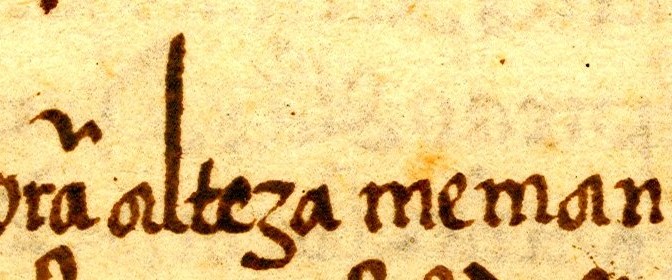 vra alteza meman